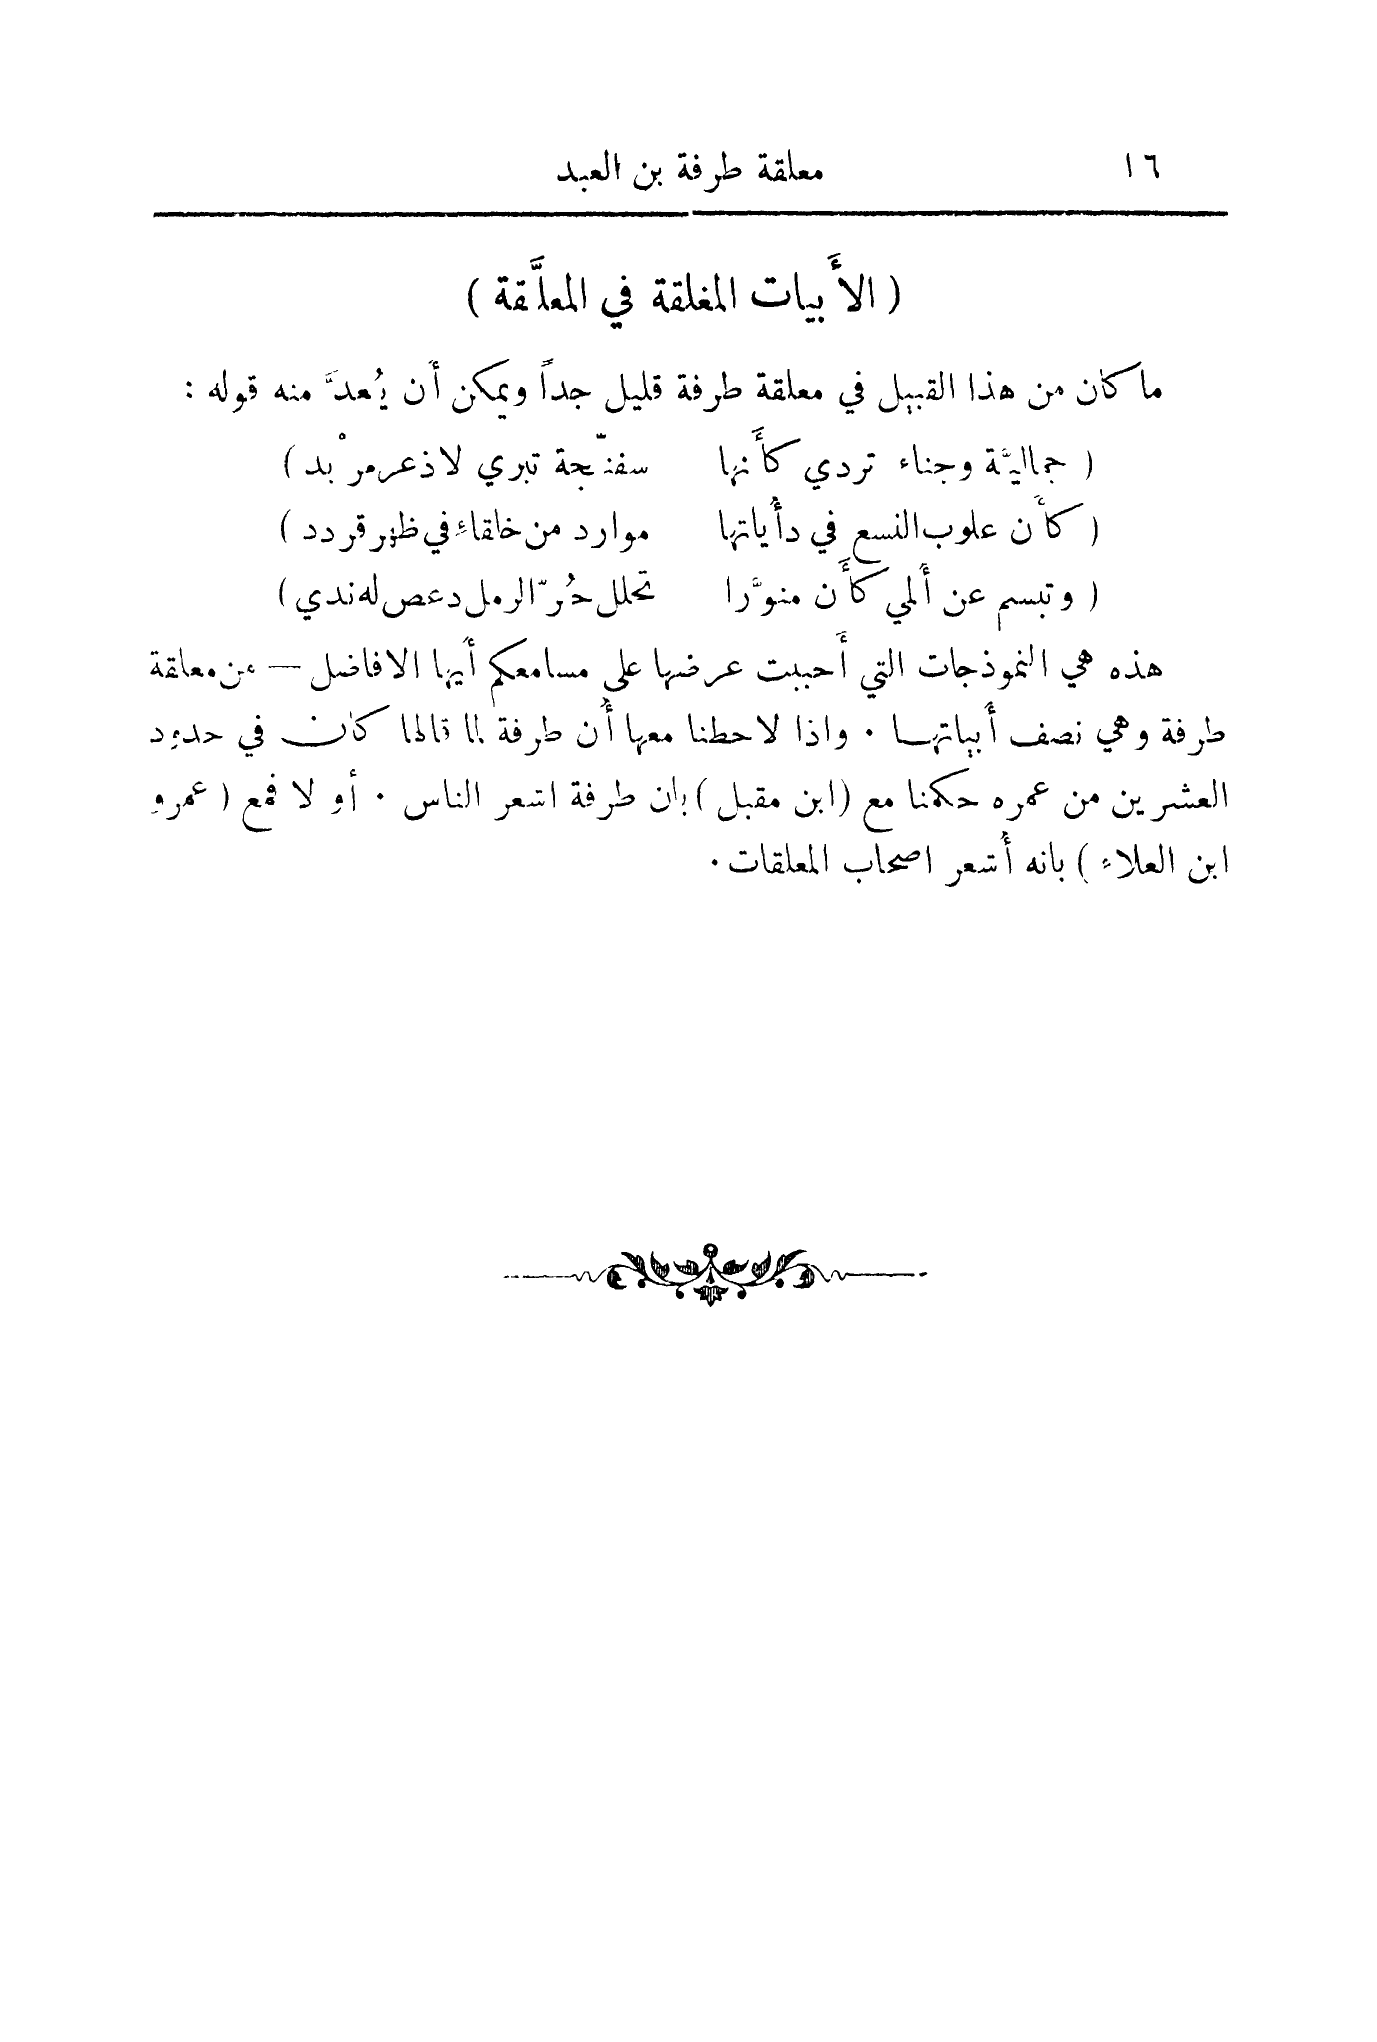 ١٦ معلقة طرفة بن العبد
( الأَبيات المغلقة في المعلَّقة )
ما كان من هذا القبيل في معلقة طرفة قليل جداً ويمكن أن يُعدَّ منه قوله :
( جماليَّة وجناء تردي كأَنها سفنَّجة تبري لاذعر مرْبد )
( كأَن علوب النسع في دأْياتها موارد من خلقاءِ في ظهر قردد )
( وتبسم عن أَلمي كأَن منوَّرا تخلل حُرّ الرمل دعص له ندي )
هذه هي النموذجات التي أَحببت عرضها على مسامعكم أَيها الافاضل — من معلقة
طرفة وهي نصف أَبياتهـا . واذا لاحظنا معها أَن طرفة لما قالها كان في حدود
العشرين من عمره حكمنا مع ( ابن مقبل ) بان طرفة اشعر الناس . أو لا فمع ( عمرو
ابن العلاء ) بانه أَشعر اصحاب المعلقات .